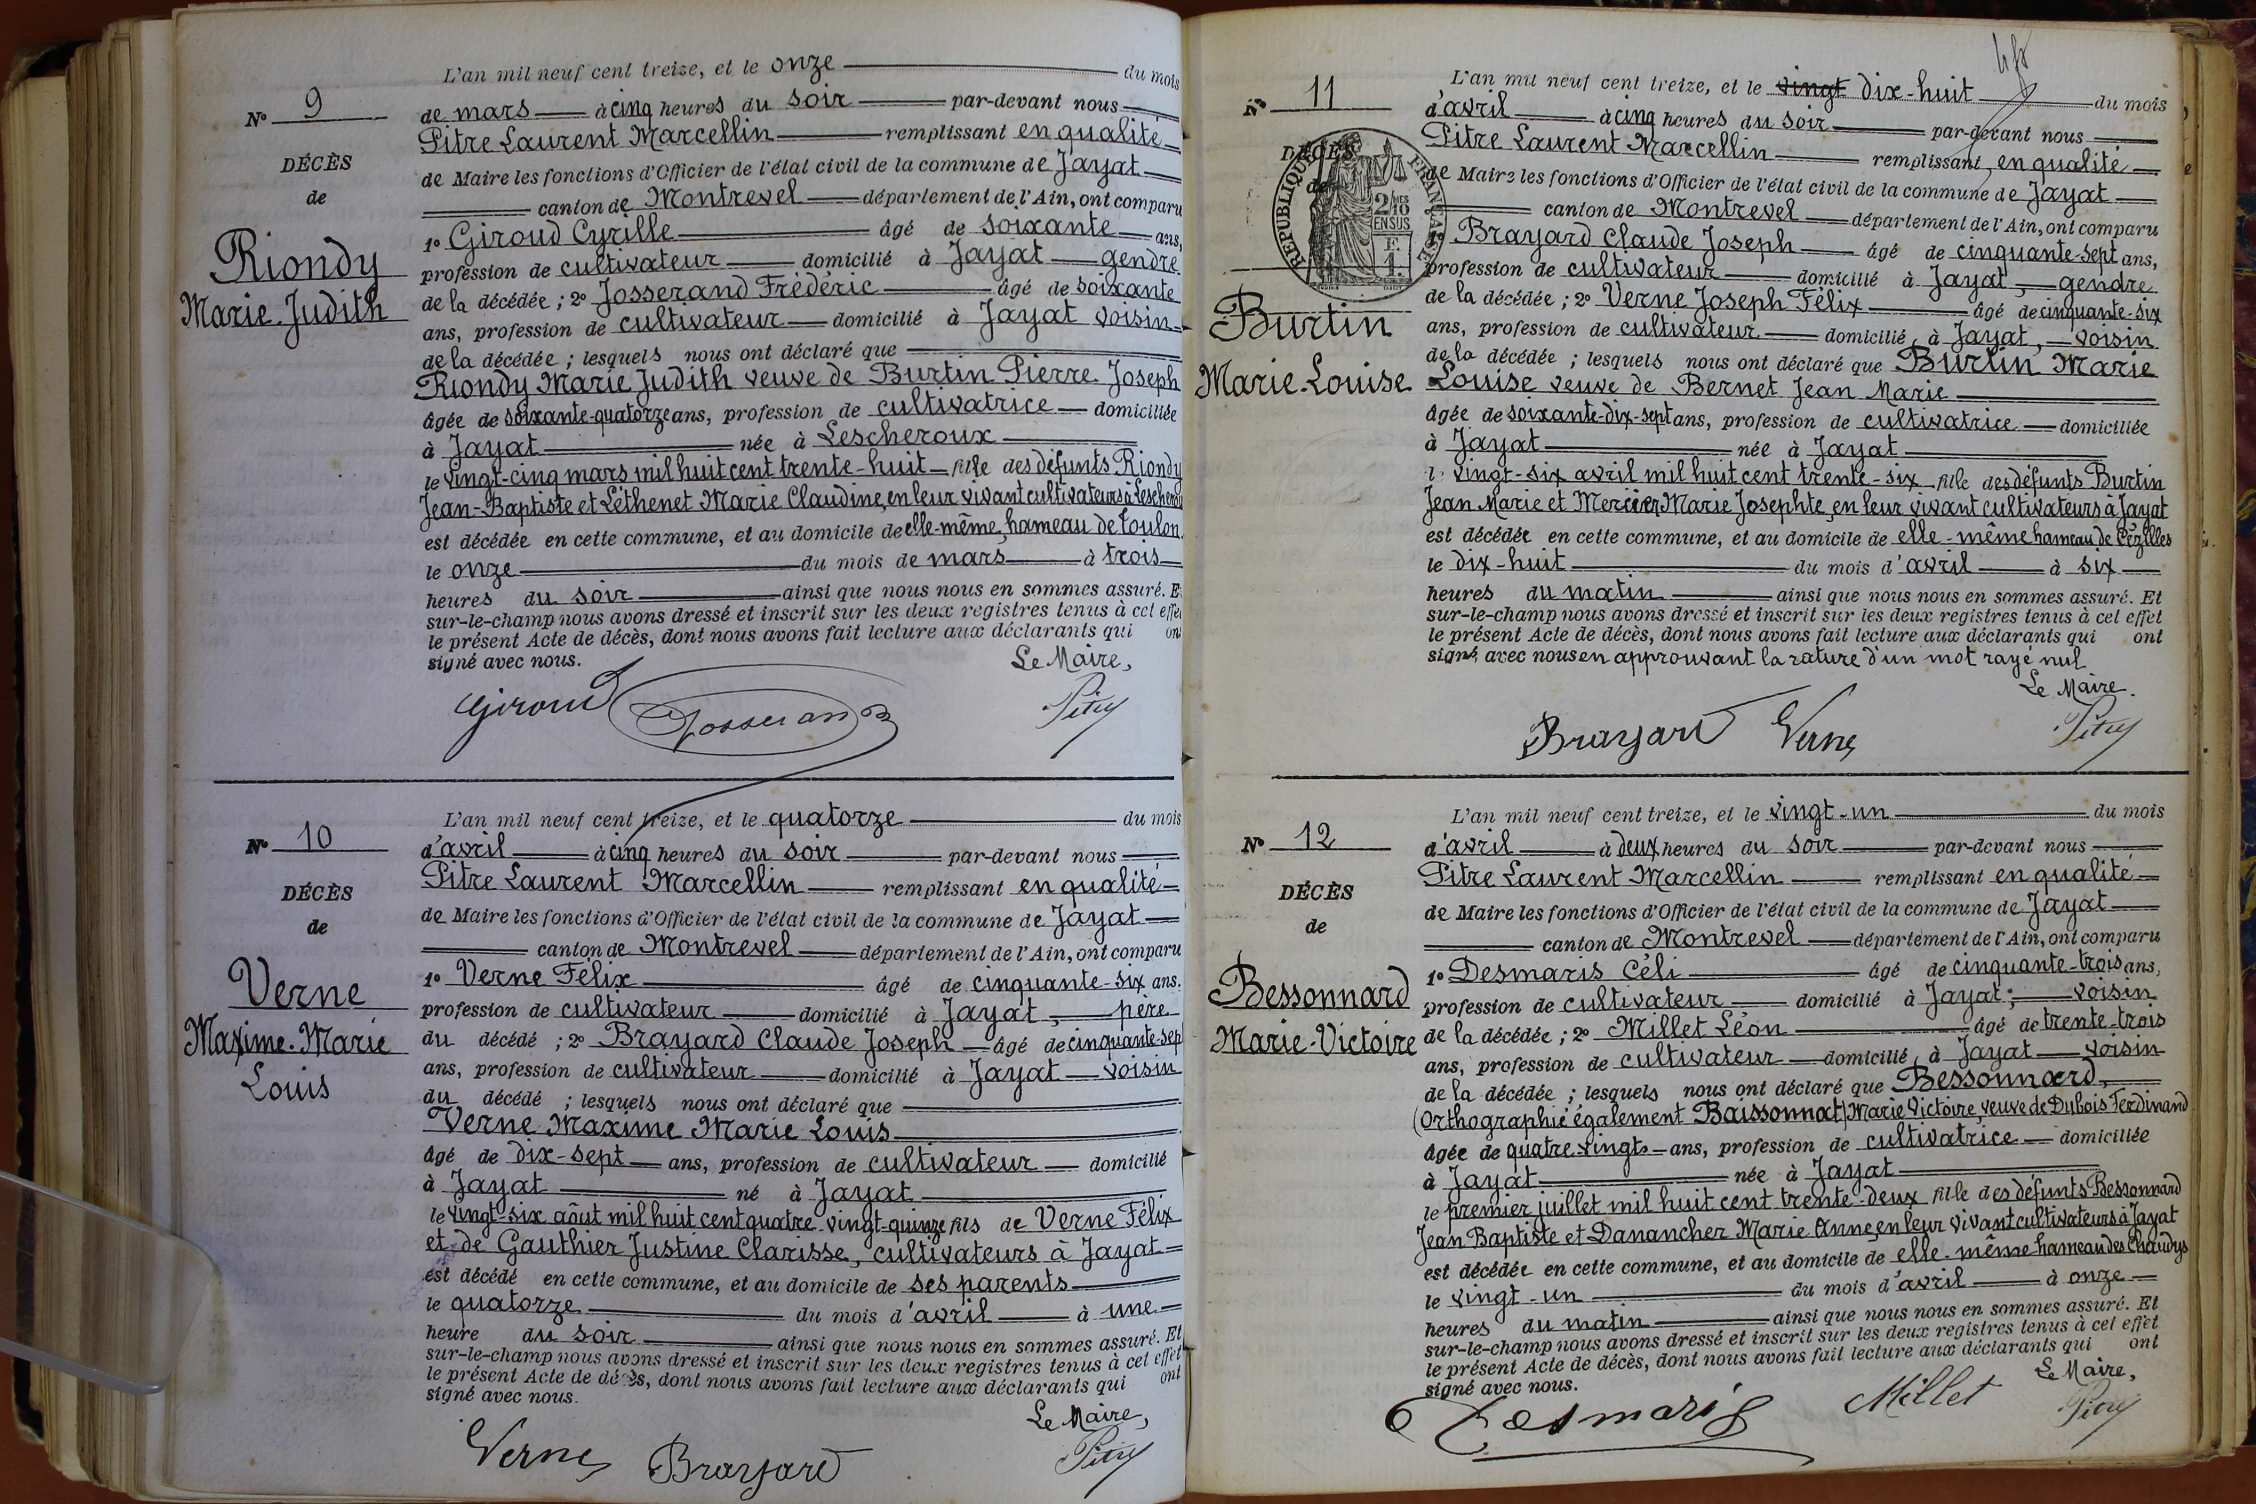 L'an mil neuf cent treize, et le onze du mois
N° 9
de mars à cinq heures du soir par-devant nous
Pitre Laurent Marcellin remplissant en qualité
DÉCÈS
de Maire les fonctions d'Officier de l'état civil de la commune de Jayat
de
canton de Montrevel département de l'Ain, ont comparu
1° Giroud Cyrille âgé de soixante ans,
Riondy
profession de cultivateur domicilié à Jayat gendre
de la décédée ; 2° Josserand Frédéric âgé de soixante
Marie-Judith
ans, profession de cultivateur domicilié à Jayat voisin
de la décédée ; lesquels nous ont déclaré que
Riondy Marie Judith veuve de Burtin Pierre Joseph
âgée de soixante-quatorze ans, profession de cultivatrice domiciliée
à Jayat née à Lescheroux
le vingt-cinq mars mil huit cent trente-huit fille des défunts Riondy
Jean-Baptiste et Léthenet Marie Claudine, en leur vivant cultivateurs à Lescheroux
est décédée en cette commune, et au domicile de elle-même, hameau de Toulon
le onze du mois de mars à trois
heures du soir ainsi que nous nous en sommes assuré. E
sur-le-champ nous avons dressé et inscrit sur les deux registres tenus à cet effet
le présent Acte de décès, dont nous avons fait lecture aux déclarants qui ont
signé avec nous.
Le Maire,
Giroud Josserand Pitre
L'an mil neuf cent treize, et le quatorze du mois
N° 10
d'avril à cinq heures du soir par-devant nous
Pitre Laurent Marcellin remplissant en qualité
DÉCÈS
de Maire les fonctions d'Officier de l'état civil de la commune de Jayat
de
canton de Montrevel département de l'Ain, ont comparu
1° Verne Félix âgé de cinquante-six ans.
Verne
profession de cultivateur domicilié à Jayat, père
du décédé ; 2° Brayard Claude Joseph âgé de cinquante-sep
Maxime-Marie
ans, profession de cultivateur domicilié à Jayat voisin
Louis
du décédé ; lesquels nous ont déclaré que
Verne Maxime Marie Louis
âgé de dix-sept ans, profession de cultivateur domicilié
à Jayat né à Jayat
le vingt-six août mil huit cent quatre-vingt-quinze fils de Verne Félix
et de Gauthier Justine Clarisse, cultivateurs à Jayat
est décédé en cette commune, et au domicile de ses parents
le quatorze du mois d'avril à une
heure du soir ainsi que nous nous en sommes assuré. Et
sur-le-champ nous avons dressé et inscrit sur les deux registres tenus à cet effet
le présent Acte de décès, dont nous avons fait lecture aux déclarants qui ont
signé avec nous.
Le Maire,
Verne Brayard Pitre
L'an mil neuf cent treize, et le vingt dix-huit du mois
N° 11
d'avril à cinq heures du soir par-devant nous
Pitre Laurent Marcellin remplissant en qualité
DÉCÈS
de Maire les fonctions d'Officier de l'état civil de la commune de Jayat
de
RÉPUBLIQUE FRANÇAISE
2/10 EN SUS
F. 1.
canton de Montrevel département de l'Ain, ont comparu
1° Brayard Claude Joseph âgé de cinquante-sept ans,
profession de cultivateur domicilié à Jayat, gendre
de la décédée ; 2° Verne Joseph Félix âgé de cinquante-six
Burtin
ans, profession de cultivateur domicilié à Jayat, voisin
de la décédée ; lesquels nous ont déclaré que Burtin Marie
Marie-Louise
Louise veuve de Bernet Jean Marie
âgée de soixante-dix-sept ans, profession de cultivatrice domiciliée
à Jayat née à Jayat
le vingt-six avril mil huit cent trente-six fille des défunts Burtin
Jean Marie et Mercier Marie Josephte, en leur vivant cultivateurs à Jayat
est décédée en cette commune, et au domicile de elle-même hameau de Cézilles
le dix-huit du mois d'avril à six
heures du matin ainsi que nous nous en sommes assuré. Et
sur-le-champ nous avons dressé et inscrit sur les deux registres tenus à cet effet
le présent Acte de décès, dont nous avons fait lecture aux déclarants qui ont
signé avec nous en approuvant la rature d'un mot rayé nul
Le Maire.
Brayard Verne Pitre
L'an mil neuf cent treize, et le vingt-un du mois
N° 12
d'avril à deux heures du soir par-devant nous
Pitre Laurent Marcellin remplissant en qualité
DÉCÈS
de Maire les fonctions d'Officier de l'état civil de la commune de Jayat
de
canton de Montrevel département de l'Ain, ont comparu
1° Desmaris Céli âgé de cinquante-trois ans,
Bessonnard
profession de cultivateur domicilié à Jayat; voisin
de la décédée ; 2° Millet Léon âgé de trente-trois
Marie-Victoire
ans, profession de cultivateur domicilié à Jayat voisin
de la décédée ; lesquels nous ont déclaré que Bessonnard,
(Orthographié également Baissonnat) Marie Victoire, veuve de Dubois Ferdinand
âgée de quatre-vingts ans, profession de cultivatrice domiciliée
à Jayat née à Jayat
le premier juillet mil huit cent trente-deux fille des défunts Bessonnard
Jean Baptiste et Danancher Marie Anne, en leur vivant cultivateurs à Jayat
est décédée en cette commune, et au domicile de elle-même hameau des Chaudys
le vingt-un du mois d'avril à onze
heures du matin ainsi que nous nous en sommes assuré. Et
sur-le-champ nous avons dressé et inscrit sur les deux registres tenus à cet effet
le présent Acte de décès, dont nous avons fait lecture aux déclarants qui ont
signé avec nous.
Le Maire,
Desmaris Millet Pitre